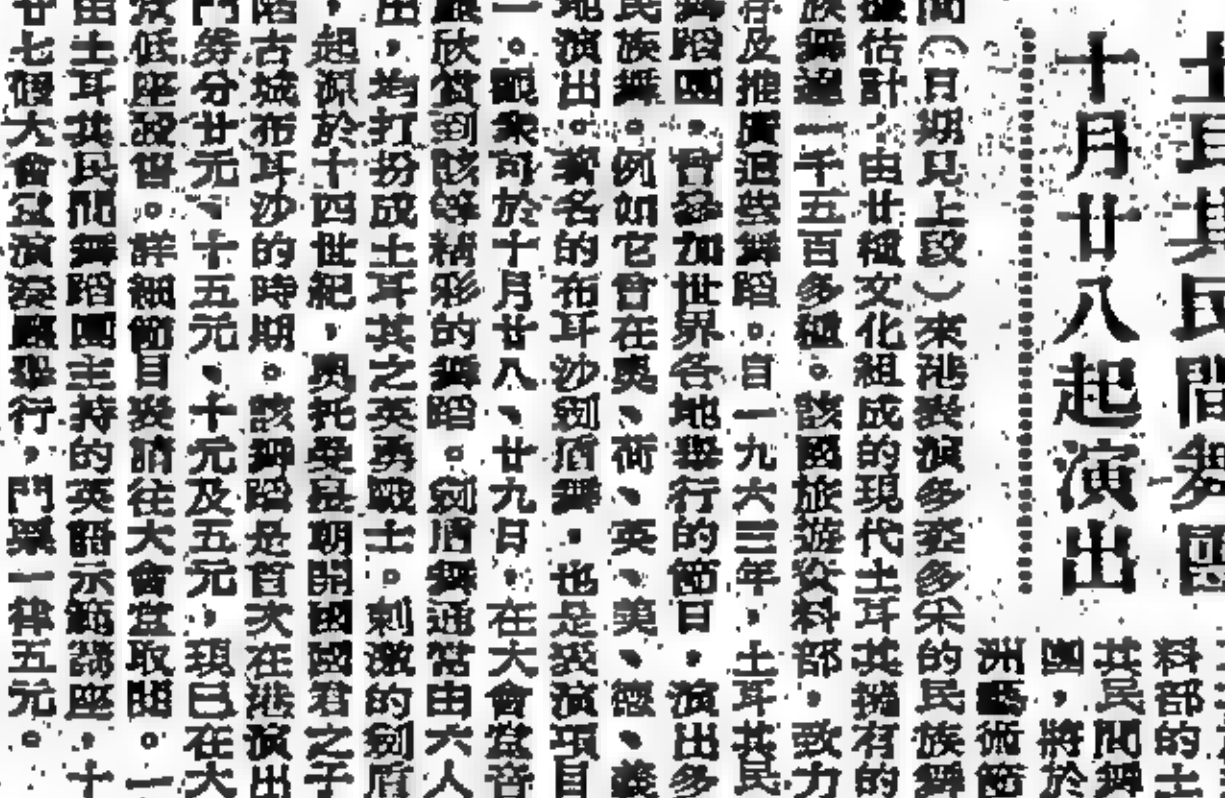 土耳其民間舞團
十月廿八起演出
料部的土
其民間舞
團，將於
洲藝術節
間（日期見上段）來港表演多姿多采的民族舞
估計，由廿種文化組成的現代土耳其擁有的
族舞達一千五百多種。該國旅遊資料部，致力
存及推廣這些舞蹈。自一九六三年，土耳其民
舞蹈團，曾參加世界各地舉行的節日，演出多
民族舞。例如它曾在奧、荷、英、美、德、義
地演出。著名的布耳沙劍盾舞，也是表演項目
一。觀衆可於十月廿八、廿九日，在大會堂音
欣賞到該等精彩的舞蹈。劍盾舞通常由六人
出，均打扮成土耳其之英勇戰士。刺激的劍盾
，起源於十四世紀，奧托曼皇朝開國國君之子
陷古城布耳沙的時期。該舞蹈是首次在港演出
門券分廿元、十五元、十元及五元，現已在大
低座發售。詳細節目表請往大會堂取閱。一
由土耳其民間舞蹈團主持的英語示範講座，十
廿七假大會堂演奏廳舉行，門票一律五元。